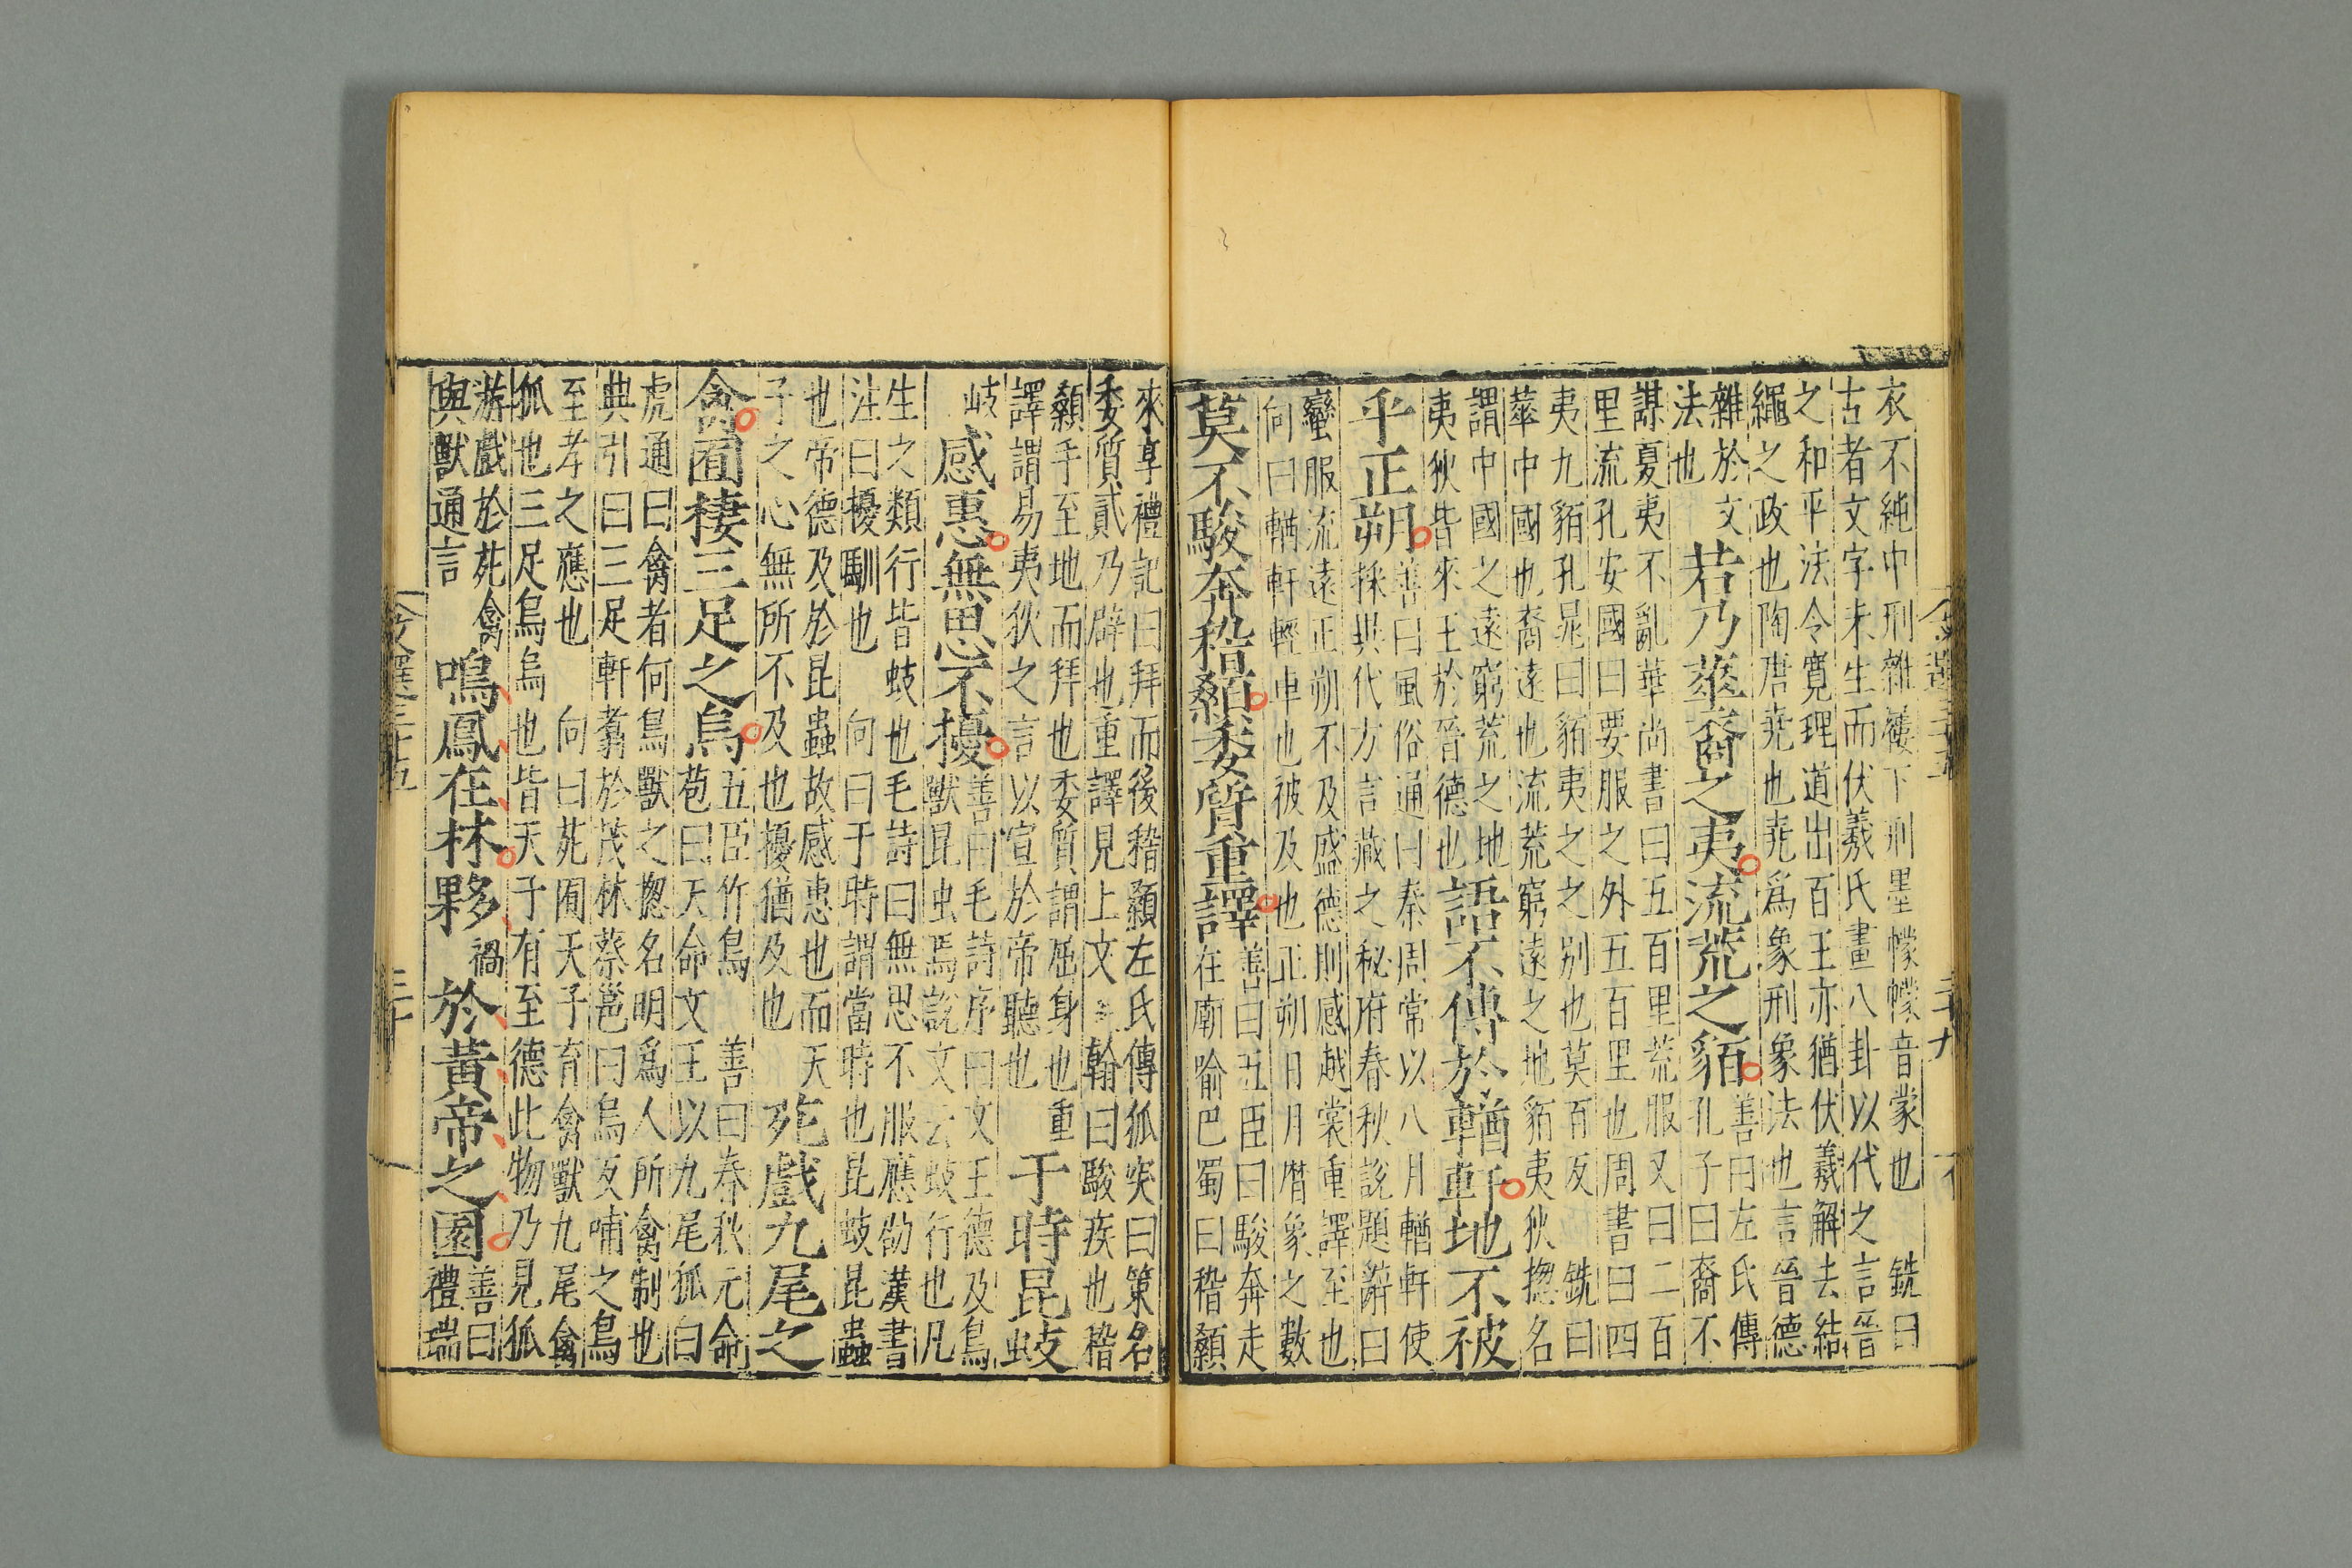 衣不純中刑雜屨下刑墨幪幪音蒙也 銑曰
古者文字未生而伏羲氏畫八卦以代之言晉
之和平法令寬理道出百王亦猶伏羲解去結
繩之政也陶唐堯也堯爲象刑象法也言晉德
雜於文
法也
若乃華裔之夷流荒之貊
善曰左氏傳
孔子曰裔不
謀夏夷不亂華尚書曰五百里荒服又曰二百
里流孔安國曰要服之外五百里也周書曰四
夷九貊孔晁曰貊夷之之别也莫百反 銑曰
華中國也裔遠也流荒窮遠之地貊夷狄揔名
謂中國之遠窮荒之地
夷狄皆來王於晉德也
語不傳於輶軒地不被
乎正朔
善曰風俗通曰秦周常以八月輶軒使
採異代方言藏之秘府春秋說題辭曰
蠻服流遠正朔不及盛德則感越裳重譯至也
向曰輶軒輕車也被及也正朔日月曆象之數
莫不駿奔稽顙委質重譯
善曰五臣曰駿奔走
在廟喻巴蜀曰稽顙
來享禮記曰拜而後稽顙左氏傳狐突曰策名
委質貳乃辟也重譯見上文 翰曰駿疾也稽
顙手至地而拜也委質謂屈身也重
譯謂易夷狄之言以宣於帝聽也
于時昆蚑
岐
感惠無思不擾
善曰毛詩序曰文王德及鳥
獸昆虫焉說文云蚑行也凡
生之類行皆蚑也毛詩曰無思不服應劭漢書
注曰擾馴也 向曰于時謂當時也昆蚑昆蟲
也帝德及於昆蟲故感惠也而天
子之心無所不及也擾猶及也
苑戲九尾之
禽囿棲三足之烏
五臣作鳥 善曰春秋元命
苞曰天命文王以九尾狐白
虎通曰禽者何鳥獸之揔名明爲人所禽制也
典引曰三足軒翥於茂林蔡邕曰烏反哺之鳥
至孝之應也 向曰苑囿天子育禽獸九尾禽
狐也三足烏烏也皆天子有至德此物乃見狐
游戲於苑禽
與獸通言
鳴鳳在林夥
禍
於黃帝之園
善曰
禮瑞